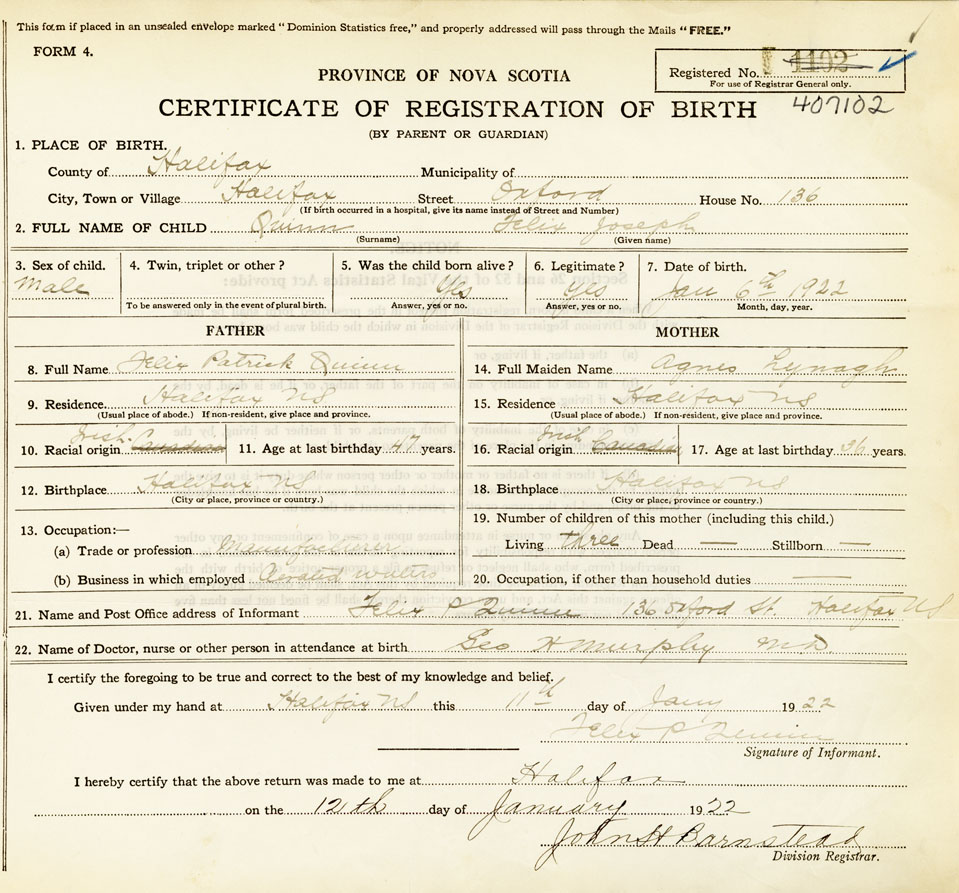 This form if placed in an unsealed envelope marked "Dominion Statistics free," and properly addressed will pass through the Mails "FREE."
FORM 4.
Registered No. 1102
For use of Registrar General only.
PROVINCE OF NOVA SCOTIA
CERTIFICATE OF REGISTRATION OF BIRTH 407102
(BY PARENT OR GUARDIAN)
1. PLACE OF BIRTH.
County of Halifax Municipality of
City, Town or Village Halifax Street Oxford House No. 136
(If birth occurred in a hospital, give its name instead of Street and Number)
2. FULL NAME OF CHILD Quinn Felix Joseph
(Surname) (Given name)
3. Sex of child. 4. Twin, triplet or other? 5. Was the child born alive? 6. Legitimate? 7. Date of birth.
Male Yes Yes Jan 6th 1922
To be answered only in the event of plural birth. Answer, yes or no. Answer, yes or no. Month, day, year.
FATHER MOTHER
8. Full Name Felix Patrick Quinn 14. Full Maiden Name Agnes Lynagh
9. Residence Halifax NS 15. Residence Halifax NS
(Usual place of abode.) If non-resident, give place and province. (Usual place of abode.) If non-resident, give place and province.
10. Racial origin Irish Canadian 11. Age at last birthday 47 years. 16. Racial origin Irish Canadian 17. Age at last birthday 36 years.
12. Birthplace Halifax NS 18. Birthplace Halifax NS
(City or place, province or country.) (City or place, province or country.)
13. Occupation:— 19. Number of children of this mother (including this child.)
(a) Trade or profession Manufacturer Living three Dead — Stillborn —
(b) Business in which employed Aerated waters 20. Occupation, if other than household duties —
21. Name and Post Office address of Informant Felix P Quinn 136 Oxford St. Halifax NS
22. Name of Doctor, nurse or other person in attendance at birth Geo H Murphy MD
I certify the foregoing to be true and correct to the best of my knowledge and belief.
Given under my hand at Halifax NS this 11th day of Jany 1922
Felix P Quinn
Signature of Informant.
I hereby certify that the above return was made to me at Halifax
on the 12th day of January 1922
John H Barnstead
Division Registrar.